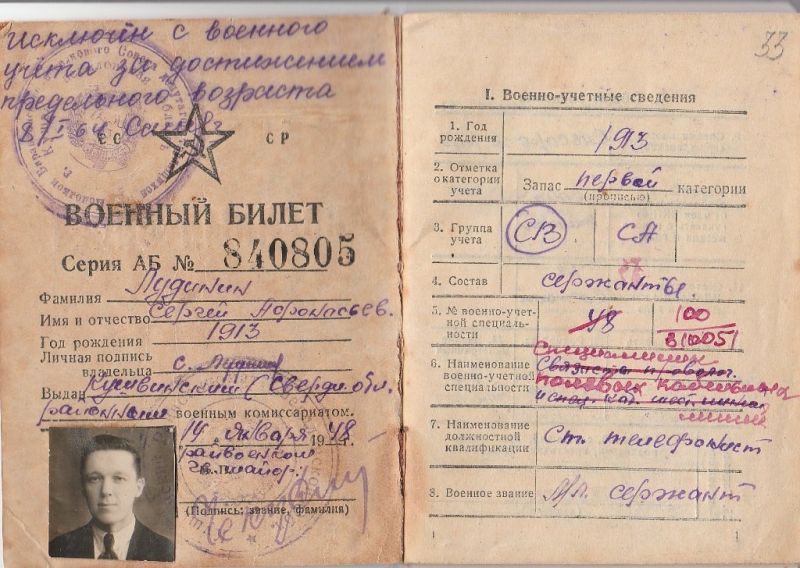 Исключён с военного
учёта за достижением
предельного возраста
СС СР
ВОЕННЫЙ БИЛЕТ
Серия АБ № 840805
Фамилия
Имя и отчество Сергей Афонасьев.
Год рождения 1913
Личная подпись
владельца с.
Выдан Кушвинский (Свердл обл.
районный военным комиссариатом.
14 " января 1948 г.
райвоенком
майор
(Подпись: звание, фамилия)
33
I. Военно-учетные сведения
1. Год рождения 1913
2. Отметка о категории учета Запас первой категории
(прописью)
3. Группа учета СВ СА
4. Состав сержанты.
5. № военно-учетной специальности 48 100
6. Наименование военно-учетной специальности Специалист
полевых кабельных
линий
7. Наименование должностной квалификации Ст. телефонист
8. Военное звание Мл. сержант
1 1